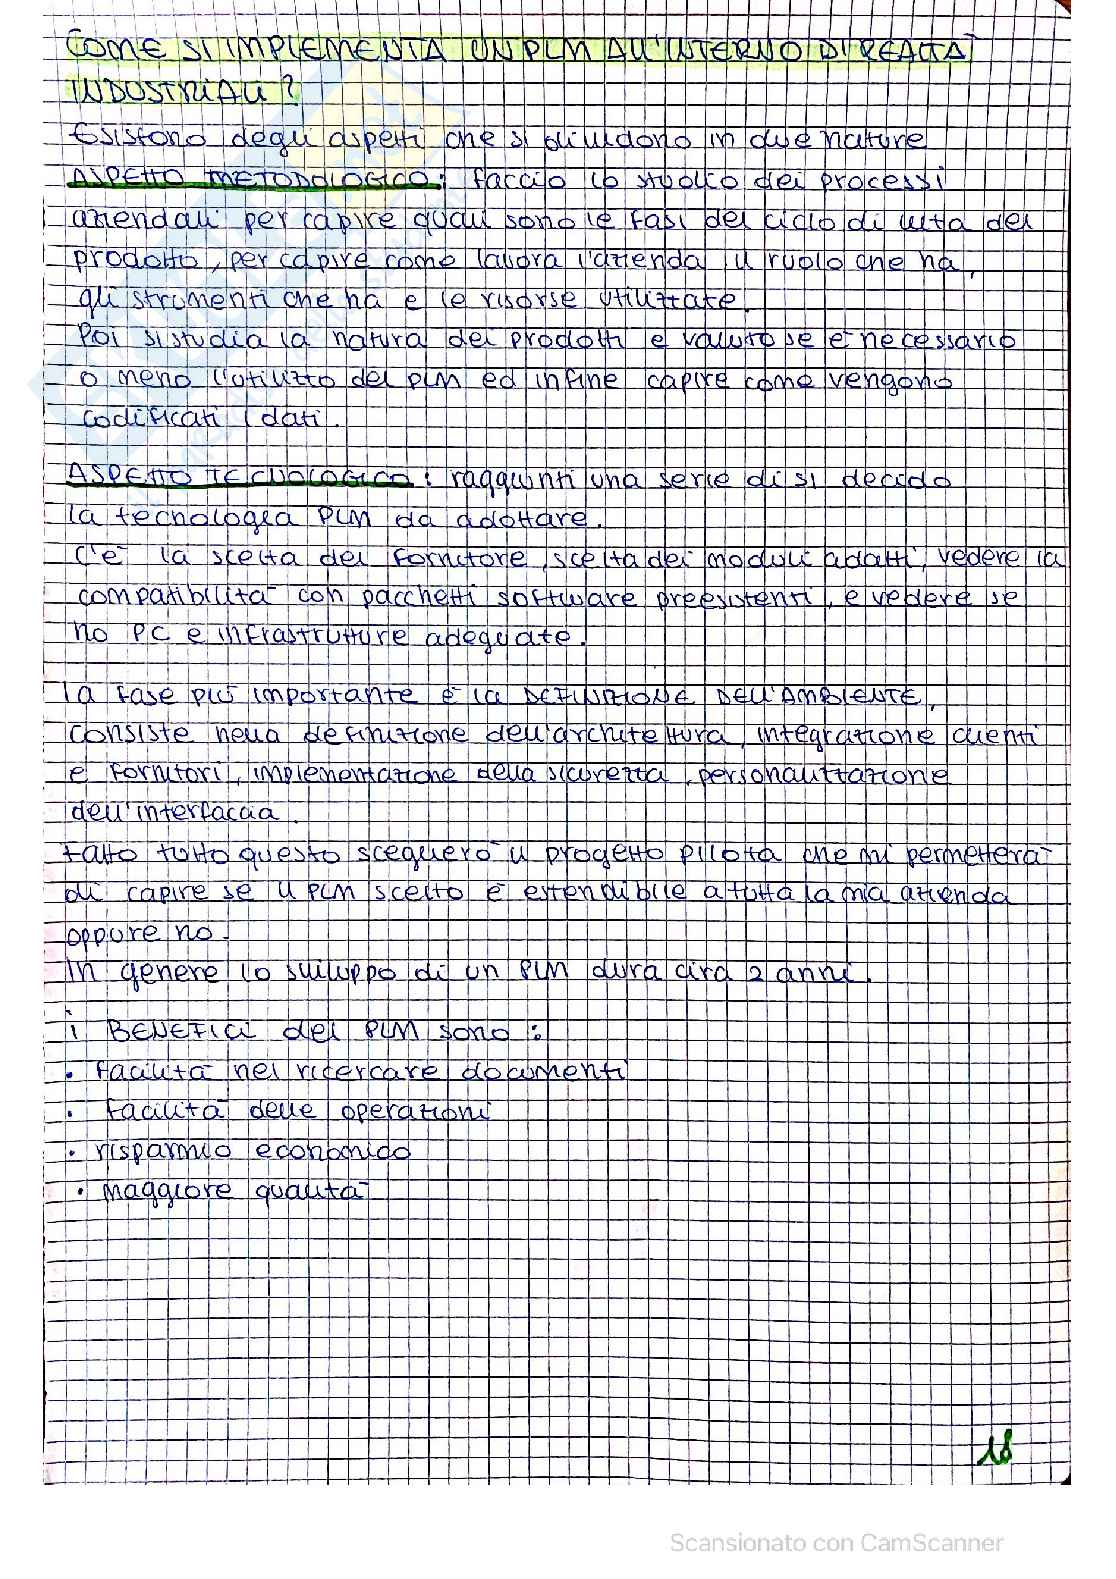 COME SI IMPLEMENTA UN PLM ALL'INTERNO DI REALTÀ
INDUSTRIALI?
Esistono degli aspetti che si dividono in due nature
ASPETTO METODOLOGICO: faccio lo studio dei processi
aziendali per capire quali sono le fasi del ciclo di vita del
prodotto, per capire come lavora l'azienda, il ruolo che ha,
gli strumenti che ha e le risorse utilizzate.
Poi si studia la natura dei prodotti e valuto se è necessario
o meno l'utilizzo del PLM ed infine capire come vengono
codificati i dati.
ASPETTO TECNOLOGICO: raggiunti una serie di sì decido
la tecnologia PLM da adottare.
C'è la scelta del fornitore, scelta dei moduli adatti, vedere la
compatibilità con pacchetti software preesistenti, e vedere se
ho PC e infrastrutture adeguate.
la fase più importante è la DEFINIZIONE DELL'AMBIENTE,
consiste nella definizione dell'architettura, integrazione clienti
e fornitori, implementazione della sicurezza, personalizzazione
dell'interfaccia.
Fatto tutto questo sceglierò il progetto pilota che mi permetterà
di capire se il PLM scelto è estendibile a tutta la mia azienda
oppure no.
In genere lo sviluppo di un PLM dura cira 2 anni.
i BENEFICI del PLM sono:
• facilità nel ricercare documenti
• facilità delle operazioni
• risparmio economico
• maggiore qualità
18
Scansionato con CamScanner